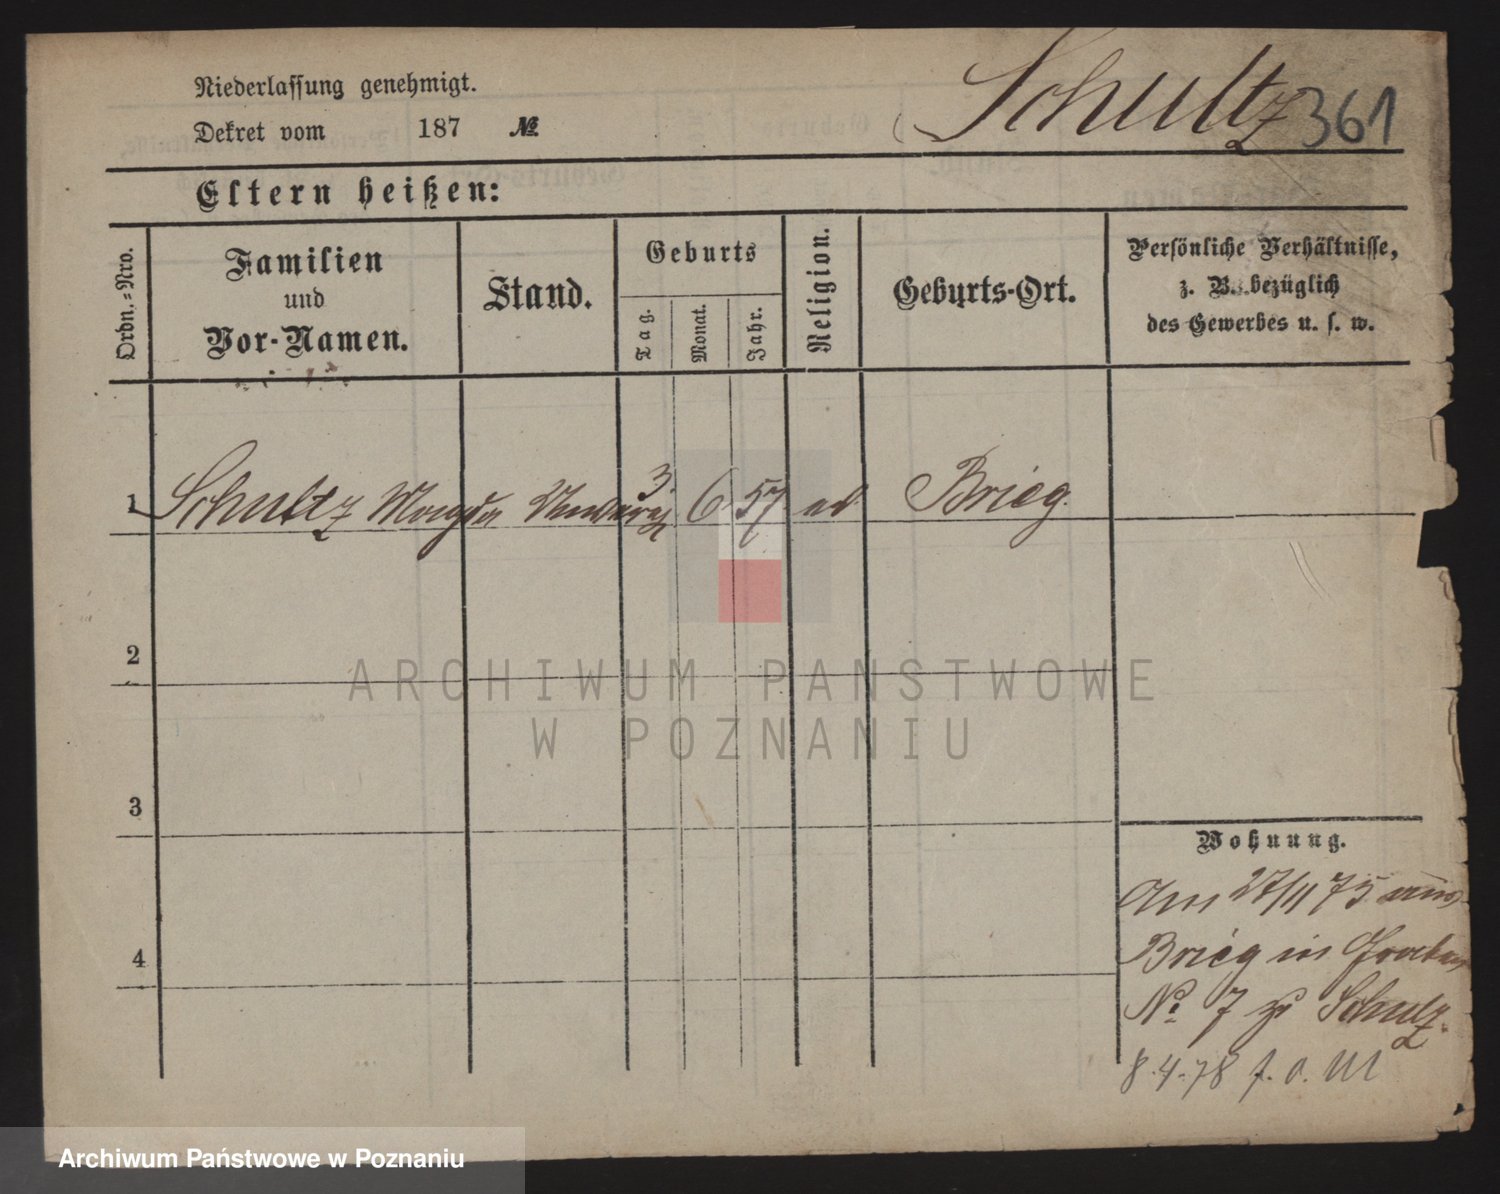 Niederlassung genehmigt.
Dekret vom 187 №
Schultz 361
Eltern heißen:
Ordn.=Nro.
Familien
und
Vor-Namen.
Stand.
Geburts
Tag.
Monat.
Jahr.
Religion.
Geburts-Ort.
Persönliche Verhältnisse,
z. B. bezüglich
des Gewerbes u. s. w.
1 Schultz Magda 3. 6 57 Brieg.
2
3
4
Wohnung.
Am 27/11 75 aus
Brieg in
No 7 zu Schulz.
8.4.78
ARCHIWUM PAŃSTWOWE
W POZNANIU
Archiwum Państwowe w Poznaniu